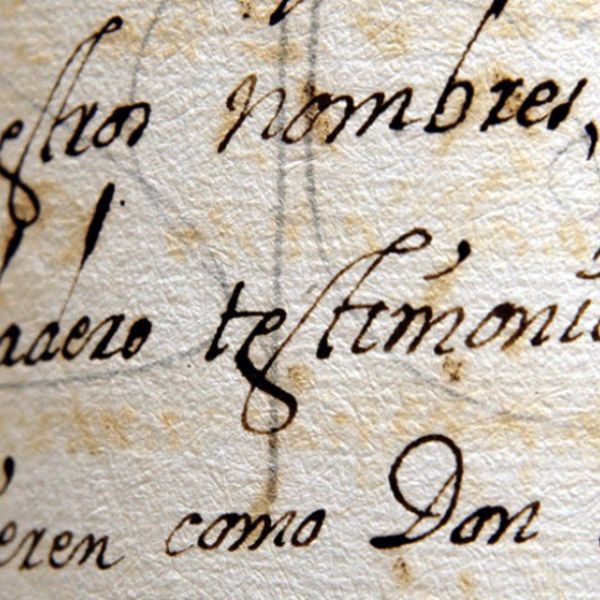 estros nombres,
adero testimonio
eren como Don